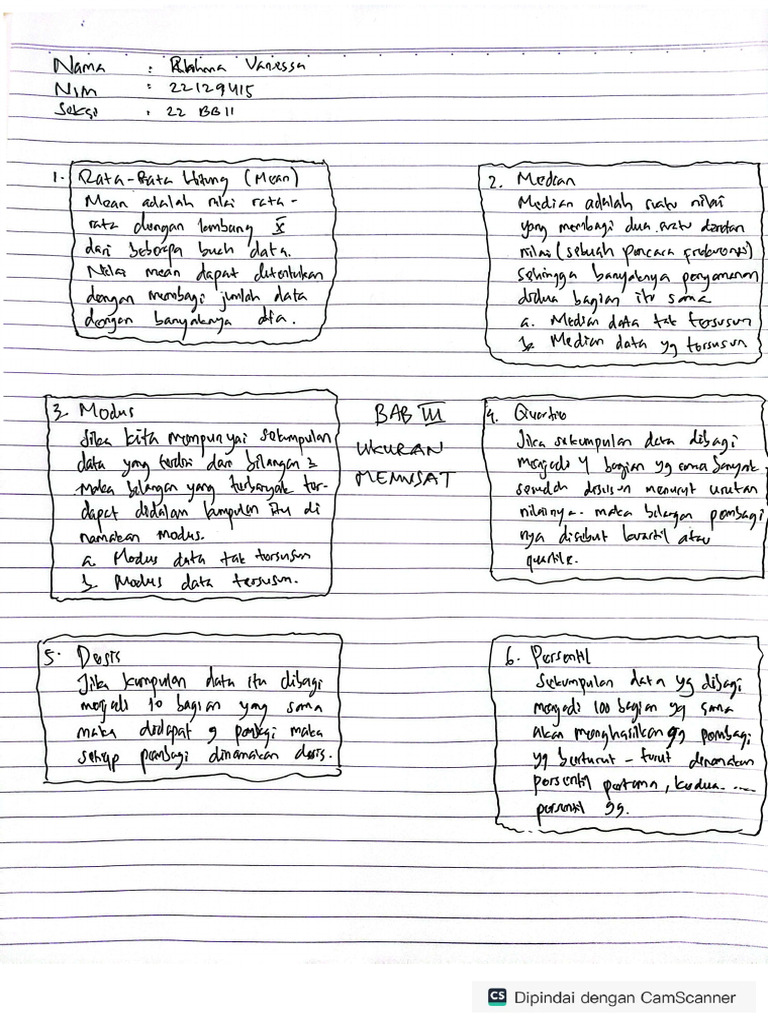 Nama : Rahma Vanessa
Nim : 22129415
Seksi : 22 BB 11
1. Rata-Rata Hitung (Mean)
Mean adalah nilai rata-
rata dengan lambang X̄
dari beberapa buah data.
Nilai mean dapat ditentukan
dengan membagi jumlah data
dengan banyaknya dia.
2. Median
Median adalah suatu nilai
yang membagi dua suatu deretan
nilai (sebuah pancaran frekuensi)
sehingga banyaknya pengamanan
didua bagian itu sama
a. Median data tak tersusun
b. Median data yg tersusun
3. Modus
Jika kita mempunyai sekumpulan
data yang terdiri dari bilangan 2
maka bilangan yang terbanyak ter-
dapat didalam kumpulan itu di
namakan modus.
a. Modus data tak tersusun
b. Modus data tersusun.
BAB III
UKURAN
MEMUSAT
4. Quartile
Jika sekumpulan data dibagi
mengadi 4 bagian yg sama banyak
sesudah disusun menurut urutan
nilainya. maka bilangan pembagi
nya disebut kuartil atau
quartile.
5. Desis
Jika kumpulan data itu dibagi
mengadi 10 bagian yang sama
maka didapat 9 pembagi maka
setiap pembagi dinamakan desis.
6. Persentil
Sekumpulan data yg dibagi
mengadi 100 bagian yg sama
akan menghasilkan 99 pembagi
yg berturut-turut dinamakan
persentil pertama, kedua....
persentil 99.
CS Dipindai dengan CamScanner